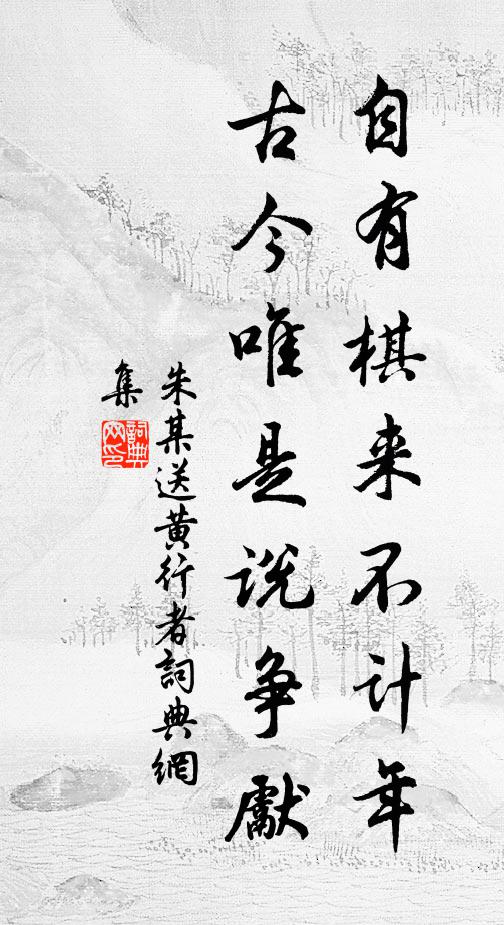 自有棋来不计年
古今唯是说争獻
朱某送黄行者詞典網
集
詞典网印